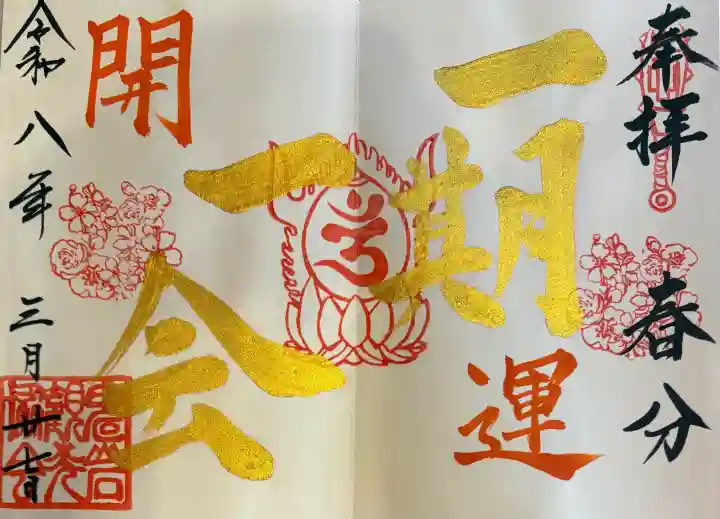 奉拝
春分
一期
一会
開運
令和八年三月廿七日